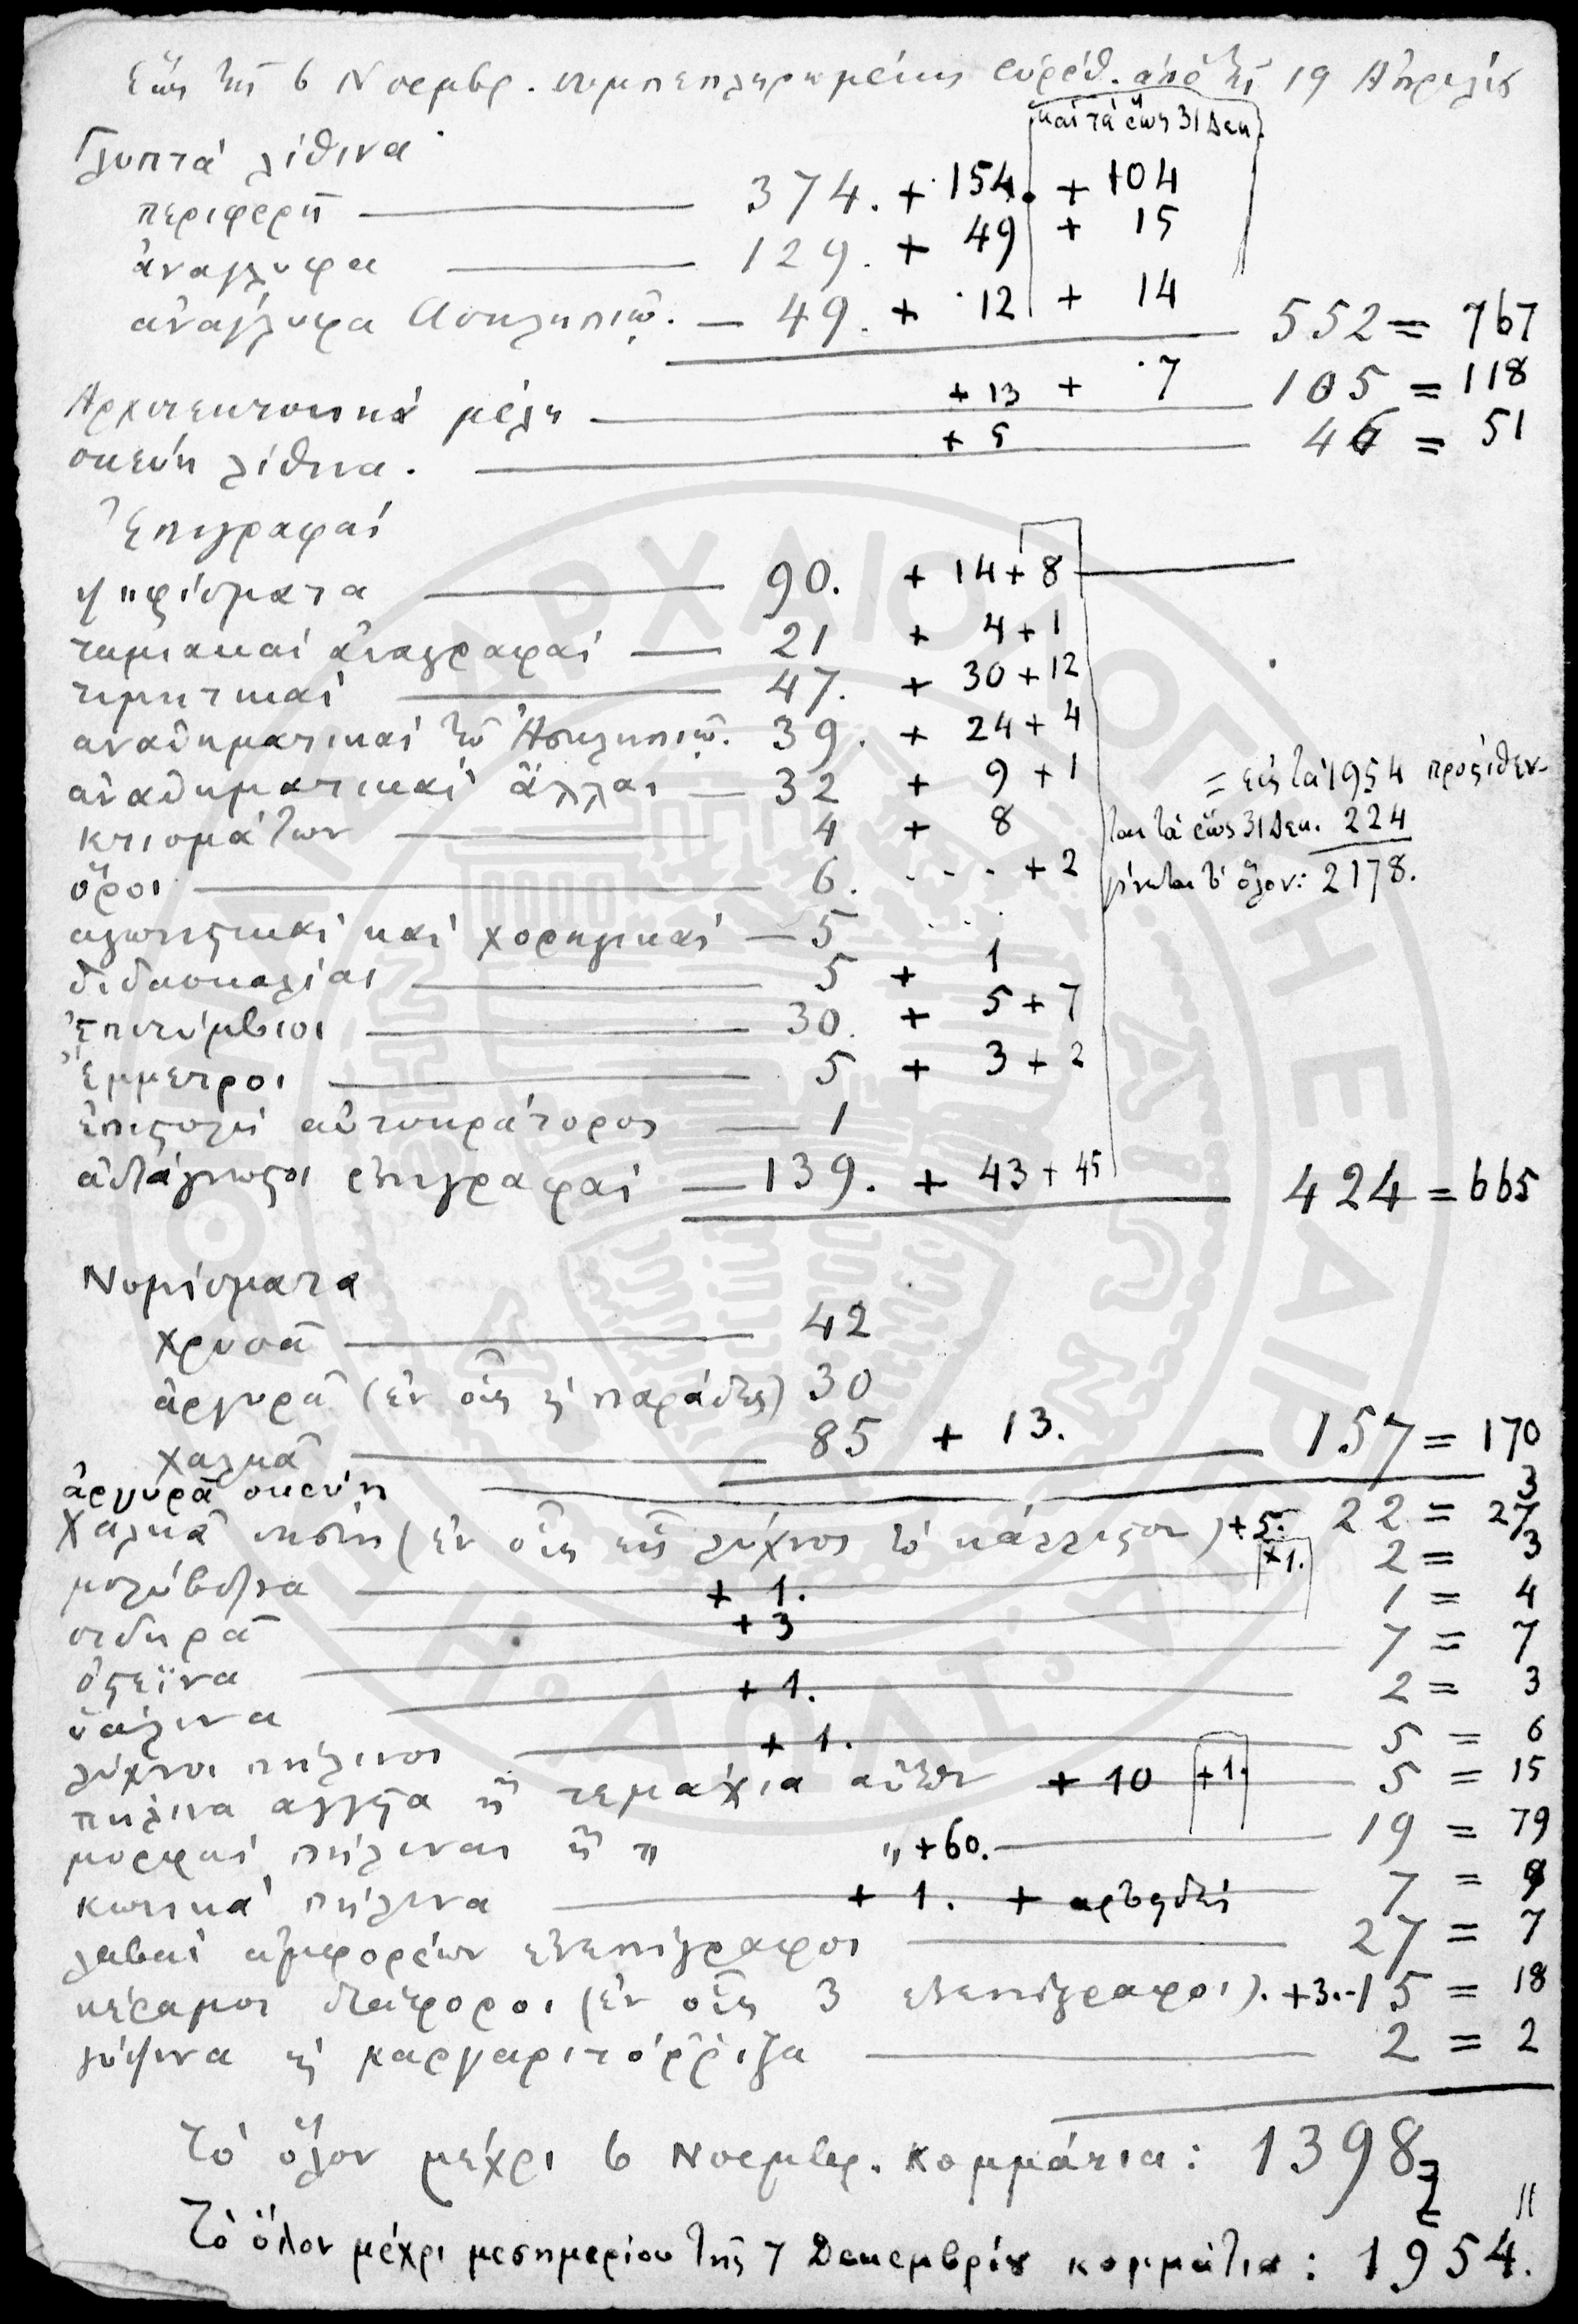 Ἕως τῆς 6 Νοεμβρ. συμπεπληρωμένως εὑρέθ. ἀπὸ τῆς 19 Ἀπριλίȣ
καὶ τὰ ἕως 31 Δεκ.
Γλυπτά λίθινα
περιφερῆ — 374. + 154. + 104
ἀνάγλυφα — 129. + 49 + 15
ἀνάγλυφα Ἀσκληπιῷ. — 49. + 12 + 14 552 = 767
Ἀρχιτεκτονικά μέλη — + 13 + 7 105 = 118
σκεύη λίθινα. — + 5 46 = 51
Ἐπιγραφαί
ψηφίσματα — 90. + 14 + 8 —
ταμιακαί ἀναγραφαί — 21 + 4 + 1
τιμητικαί — 47. + 30 + 12
ἀναθηματικαί τῷ Ἀσκληπιῷ. 39. + 24 + 4
ἀναθηματικαί ἄλλαι — 32 + 9 + 1
= εἰς τὰ 1954 προςτίθεν-
κτισμάτων — 4 + 8
ται τὰ ἕως 31 Δεκ. 224
ὅροι — 6. - - - + 2
γίνεται τὸ ὅλον: 2178.
ἀγωνιστικαί καί χορηγικαί — 5 . . .
διδασκαλίαι — 5 + 1
Ἐπιτύμβιοι — 30. + 5 + 7
Ἔμμετροι — 5 + 3 + 2
ἐπιστολή αὐτοκράτορος — 1
ἀδιάγνωστοι ἐπιγραφαί — 139. + 43 + 45 424 = 665
Νομίσματα
χρυσᾶ — 42
ἀργυρᾶ (ἐν οἷς ἡ παράδες) 30
χαλκᾶ — 85 + 13. — 157 = 170
ἀργυρᾶ σκεύη — 3
χαλκᾶ (ἐν οἷς εἷς λύχνος τὸ κάλλιστον) + 5. 22 = 27
μολύβδινα — + 1. +1. 2 = 3
σιδηρᾶ — + 3 1 = 4
ὀστέϊνα — 7 = 7
ὑάλινα — + 1. 2 = 3
λύχνοι πήλινοι — + 1. 5 = 6
πήλινα ἀγγεῖα ἢ τεμάχια αὐτῶν + 10 +1. 5 = 15
μορφαί πήλιναι ἢ „ „ + 60. — 19 = 79
κωνικά πήλινα — + 1. + 7 = 9
λαβαί ἀμφορέων ἐνεπίγραφοι — 27 = 7
κέραμοι διάφοροι (ἐν οἷς 3 ἐνεπίγραφοι). +3.-15 = 18
γύψινα ἢ μαργαριτόῤῥιζα — 2 = 2
τὸ ὅλον μέχρι 6 Νοεμβρ. κομμάτια: 1398
Τὸ ὅλον μέχρι μεσημερίου τῆς 7 Δεκεμβρίȣ κομμάτια: 1954.